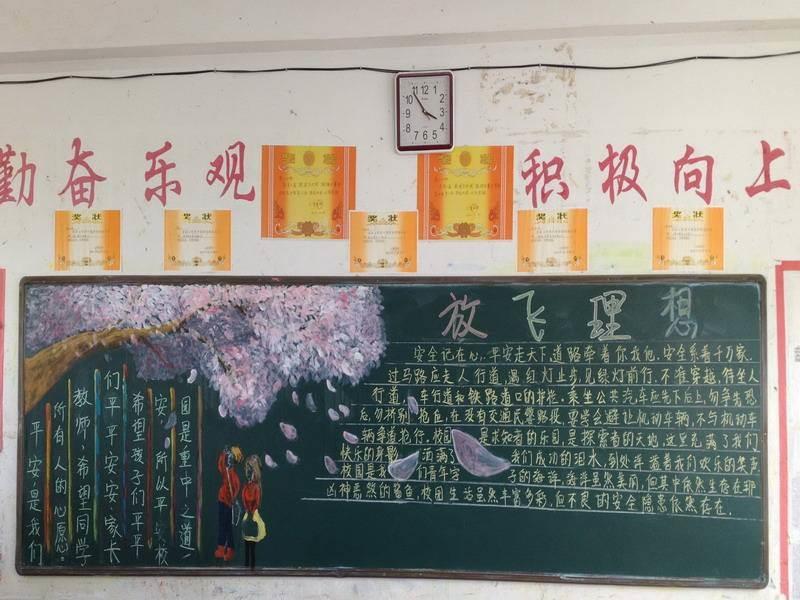 11 12 1
10 2
9 3
8 4
7 6 5
勤奋乐观
积极向上
奖状
奖状
奖状
奖状
奖状
放飞理想
安全记在心,平安走天下,道路牵着你我他,安全系着千万家.
过马路应走人行道,遇红灯止步,见绿灯前行,不准穿越,倚坐人
行道、车行道和铁路道口的护栏.乘坐公共汽车应先下后上,勿争先恐
后,勿挤别抢乘,在没有交通民警路段,要学会避让机动车辆,不与机动车
辆争道抢行.校园 是求知者的乐园,是探索者的天地,这里充满了我们
快乐的身影 洒满了 我们成功的泪水,到处洋溢着我们欢乐的笑声
校园是我 们青年学 子的海洋,海洋虽然美丽,但其中依然生存在那
凶神恶煞的鲨鱼.校园生活虽然丰富多彩,但不良的安全隐患依然存在.
园是重中之道,
安,所以平 校
希望孩子们平平
们平平安安,家长
教师希望同学
所有人的心愿.
平安是我们